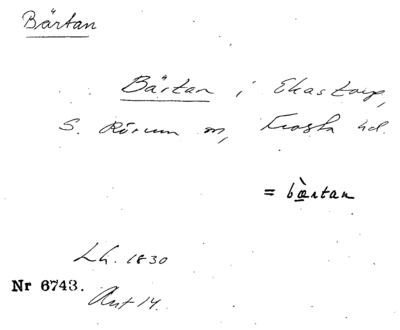 Bärtan
Bärtan i Ekastorp,
S. Rörum sn, Frosta hd.
= bæ̀rtan
Lh. 1830
Nr 6743.
Ant 14.